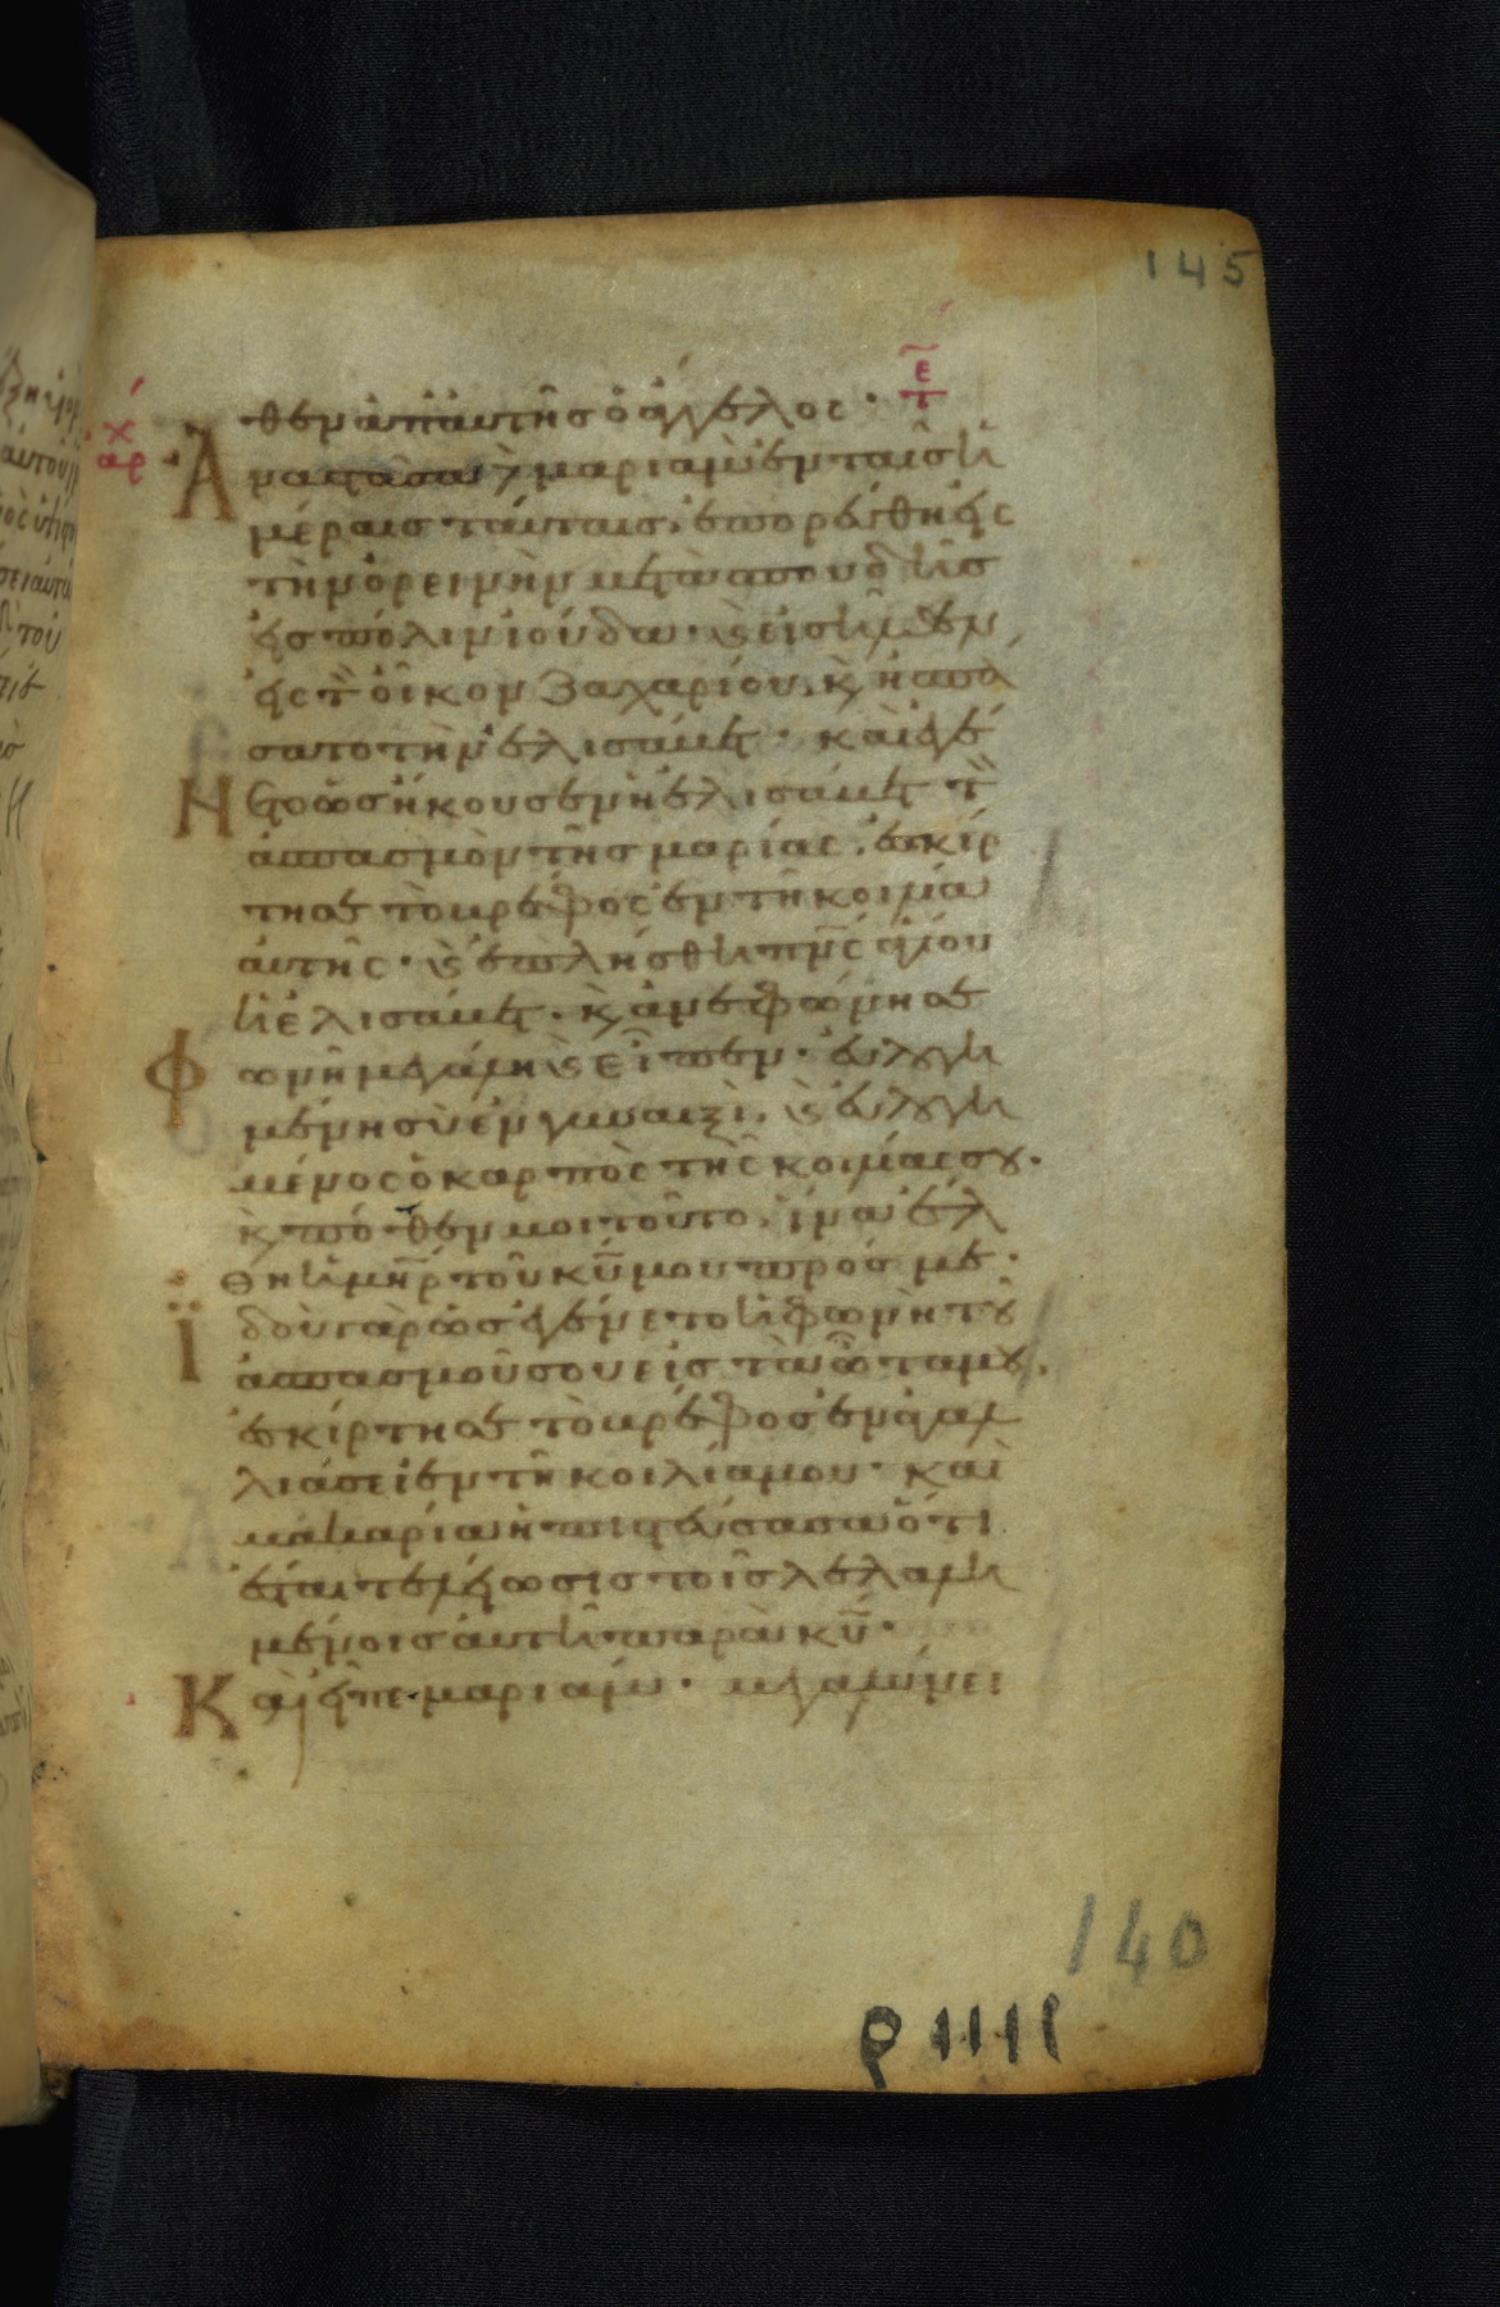 145
ε̃
τ
χ
αρ
θεν ἀπ' ἀυτῆσ ὁ ἄγγελος·
Ἀναστᾶσα δὲ μαριὰμ ἐν ταῖσ ἡ
μέραισ ταύταισ. ἐπορεύθη εἰς
τὴν ὀρεινὴν μετὰ σπουδῆσ
εἰσ πόλιν ἰούδα· ϗ εἰσῆλθεν
εἰς τ̀ οἶκον Ζαχαρίου. ϗ ἠσπά
σατο τὴν ἐλισάβετ· καὶ ἐγέ
Νετο ὡσ ἤκουσεν ἡ ἐλισάβετ τ̀
ἀσπασμὸν τῆσ μαρίας. ἐσκίρ
τησε τὸ βρέφος ἐν τῆ κοιλία
ἀυτῆς· ϗ ἐπλήσθη πν̅ς ἁγίου
ἡ ἐλισάβετ. ϗ ἀνεφώνησε
Φωνῆ μεγάλη ϗ εἶπεν· ἐυλογη
μένη σὺ ἐν γυναιξὶ. ϗ ἐυλογη
μένος ὁ καρπὸς τῆς κοιλίας σου.
ϗ πόθεν μοι τοῦτο. ἵνα ἔλ
θη ἡ μη̅ρ τοῦ κυ̅ μου πρόσ με·
Ϊδοὺ γὰρ ὡσ ἐγένετο ἡ φωνὴ τοῦ
ἀσπασμοῦ σου εἰσ τὰ ὦτα μου.
ἐσκίρτησε τὸ βρέφοσ ἐν ἀγαλ
λιάσει ἐν τῆ κοιλία μου· καὶ
μακαρία ἡ πιστεύσασα ὅτι
ἔσται τελείωσισ τοῖσ λελαλη
μένοισ ἀυτῆ παρὰ κυ̅·
Καὶ εἶπε μαριάμ· μεγαλύνει
140